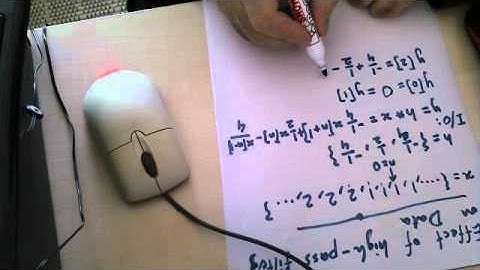 Effect of high-pass filter
on Data
x = {...,1,1,1,2,2,2,...}
n=0
h = {-1/4, 1/2, -1/4}
I/O:
y = h*x = -1/4 x[n+1] + 1/2 x[n] - x[n-1]/4
y[0] = 0 = y[1]
y[2] = -1/4 + 1/2 -